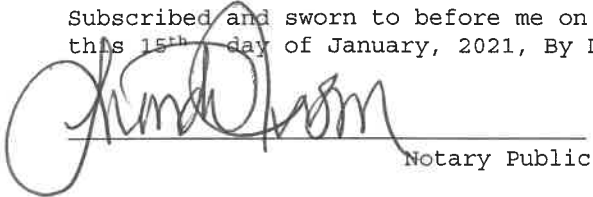 Subscribed and sworn to before me on
this 15th day of January, 2021, By
Notary Public